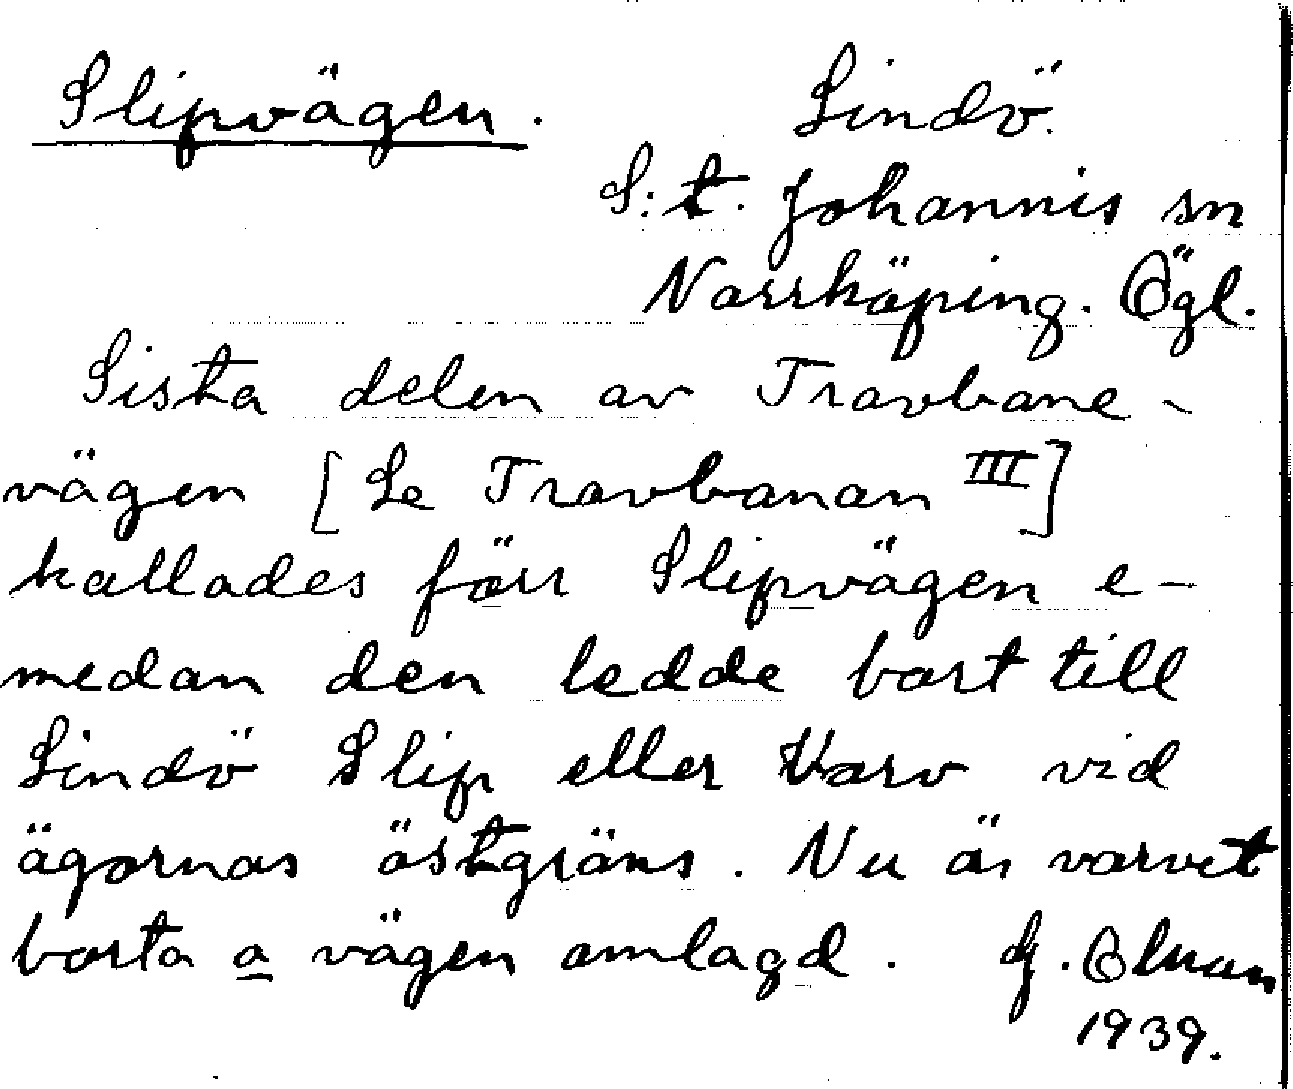 Slipvägen. Lindö.
S:t. Johannis sn
Norrköping. Ögl.
Sista delen av Travbane-
vägen [Se Travbanan III]
kallades förr Slipvägen e-
medan den ledde bort till
Lindö Slip eller Varv vid
ägornas östgräns. Nu är varvet
borta a vägen omlagd. G. Elman
1939.